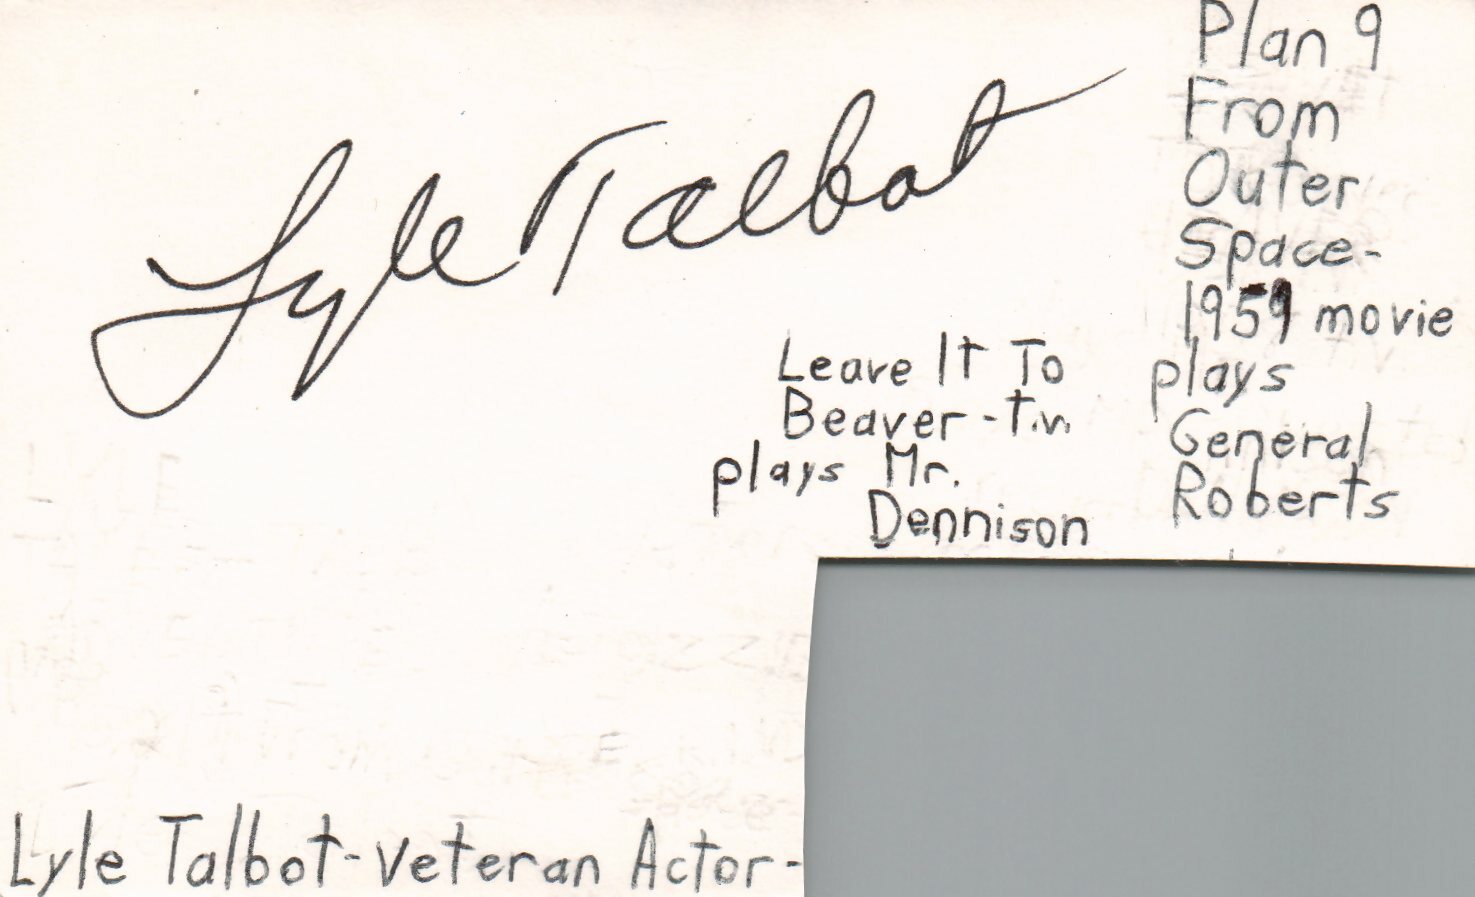 Lyle Talbot
Leave It To
Beaver - t.v.
plays Mr.
Dennison
Plan 9
From
Outer
Space-
1959 movie
plays
General
Roberts
Lyle Talbot - Veteran Actor -